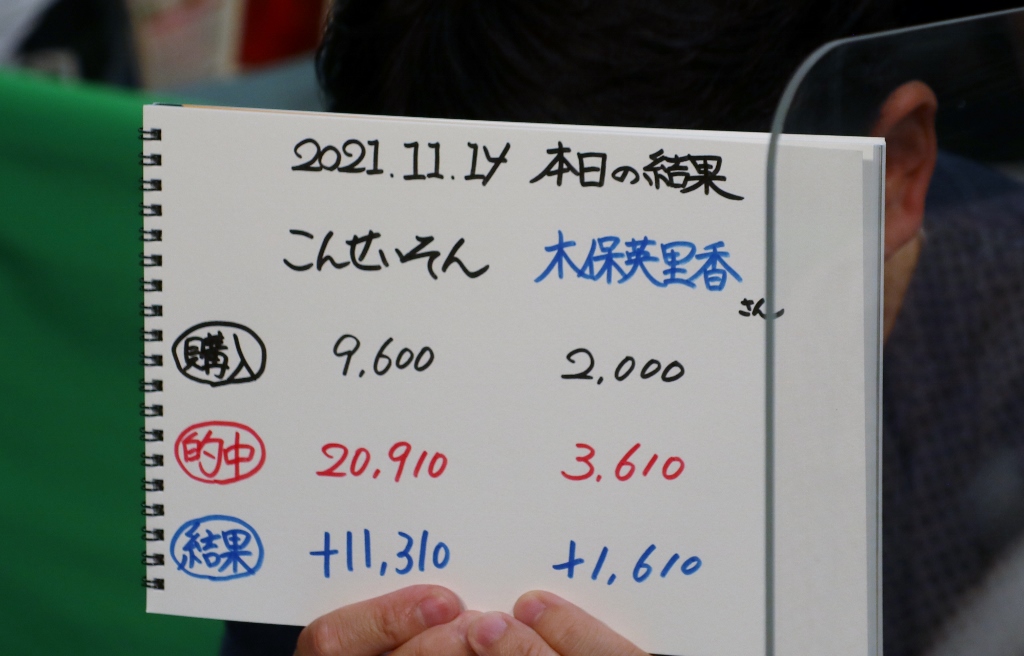 2021.11.14 本日の結果
こんせいそん 木保英里香さん
購入 9,600 2,000
的中 20,910 3,610
結果 +11,310 +1,610